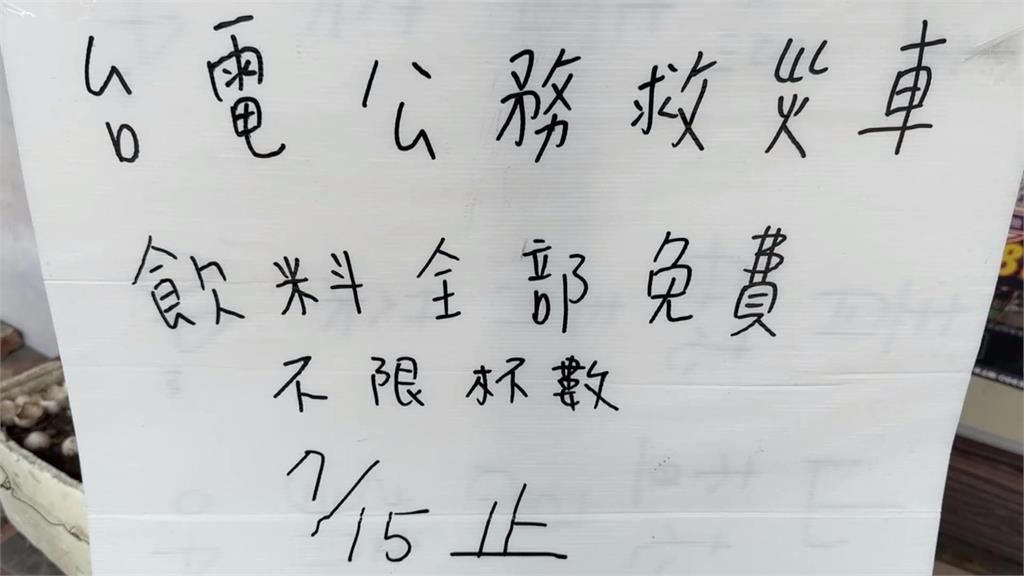 台電公務救災車
飲料全部免費
不限杯數
7/15止